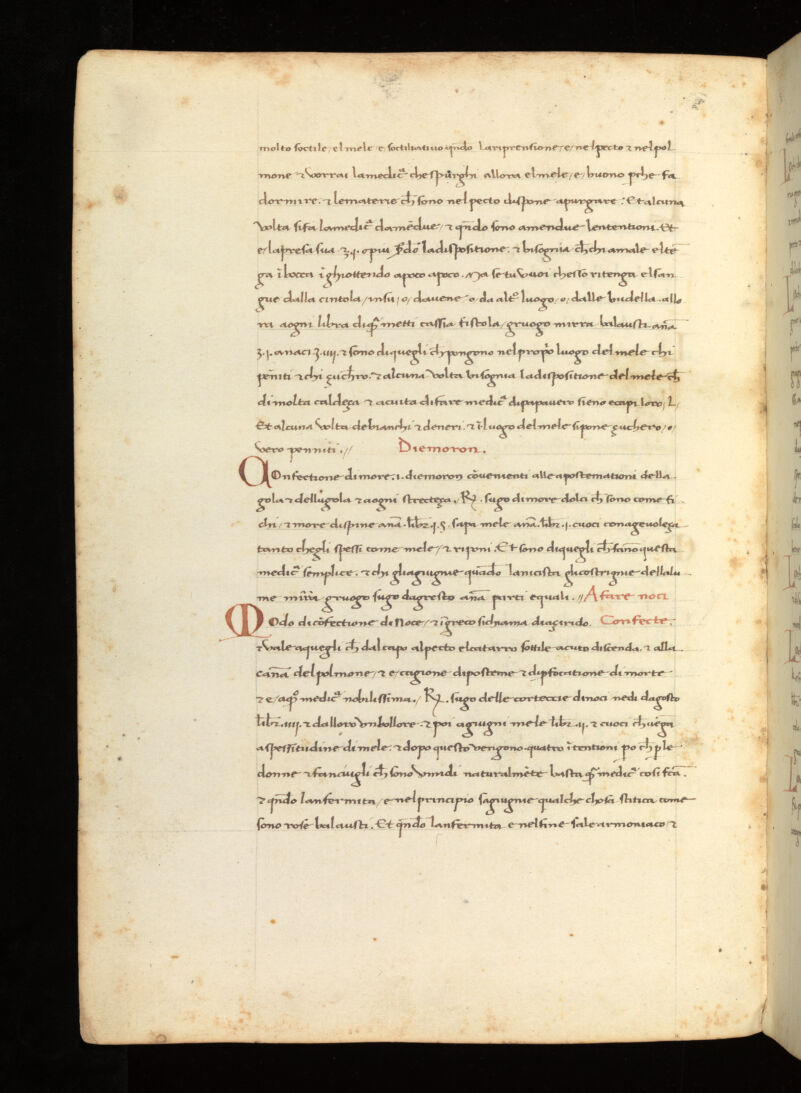 molto sottile / el mele / e / sottiliativo q̃ndo lariprensione / e / nelpecto ⁊ nelpol
mone ⁊ vorrai lamedic̃ che spurghi allora elmele / e / buono pche fa
dormire. ⁊ lematerie ch̃ sono nelpecto dispone apurgare. Et alcuna
volta sifa lamedic̃ damẽdue / ⁊ q̃ndo sono amendue lentẽtioni. Et
e / lapresa sua ʒ.j. opiu sc̃do ladispositione. ⁊ bisognia ch̃ chi amale eltẽ
ga ĩ bocca ĩghiottendo apoco apoco. Ma se tu vuoi chessõ ritenga elsan
gue dalla cintola / insu / o / davene o / da alt̃o luogo / o / dalle budella. allo
ra aogni libra diq̃sta metti cassia fistola / gruogo mirra balausti anã
ʒ.j. anaci ʒ.iiij. ⁊ sono diquegli ch̃ pongono nel propõ luogo del mele chi
peniti ⁊ chi çuch̃ro. ⁊ alcuna volta bisognia ladispositione del mele ch̃
di molta caldeça ⁊ acuita difare medic̃ dipapavero sieno ecapi loro / L /
Et alcuna volta debianchi ⁊ deneri. ⁊ ĩ luogo del mele sipone çuchero / o /
vero penniti. // Diemoron.
Confectione di more .i. diemoron cõvenienti alle apostemationi della
gola ⁊ dellugola ⁊ aogni strecteça. ℞. sugo dimore dolci ch̃ sono come fi
chi / ⁊ more dispine anã. libr̃.j.§. sapa mele anã. libr̃.j. cuoci conagevoleça
tanto chegli spessi come mele / ⁊ riponi. Et sono diquegli ch̃ fanõ questa
medic̃ semplice. ⁊ chi gliagiugnie quãdo lanicista glicostrignie dellalu
me mirra gruogo sugo dagresto anã parti equali. // A fare noci
Modo di cõfectione di Noce / ⁊ ĩ greco sichiama diaçirido. Confecte.
⁊ vale aquegli ch̃ dal capo alpecto elcatarro sottile acuto discenda. ⁊ alla
canã del polmone / ⁊ e / cagione diposteme ⁊ disfocatione di morte
⁊ e / aq̃sto medic̃ nobilissima. / ℞. sugo delle cortecce dinoci nedi dagosto
libr̃.iiij. ⁊ dalloro unbollore. ⁊ poi agiugni mele libr̃.ij. ⁊ cuoci ch̃ vẽga
aspessitudine di mele. ⁊ dopo questo vengono quatro ĩtentioni po ch̃ ple
donne ⁊ fanciugli ch̃ sono vmidi naturalmẽte basta q̃sta medic̃ cosi fc̃a.
⁊ q̃ndo lanfermita / e nelprincipio sagiugnie qualche chosa stitica come
sono rose balausti. Et q̃ndo lanfermita e nelfine sale armoniaco ⁊